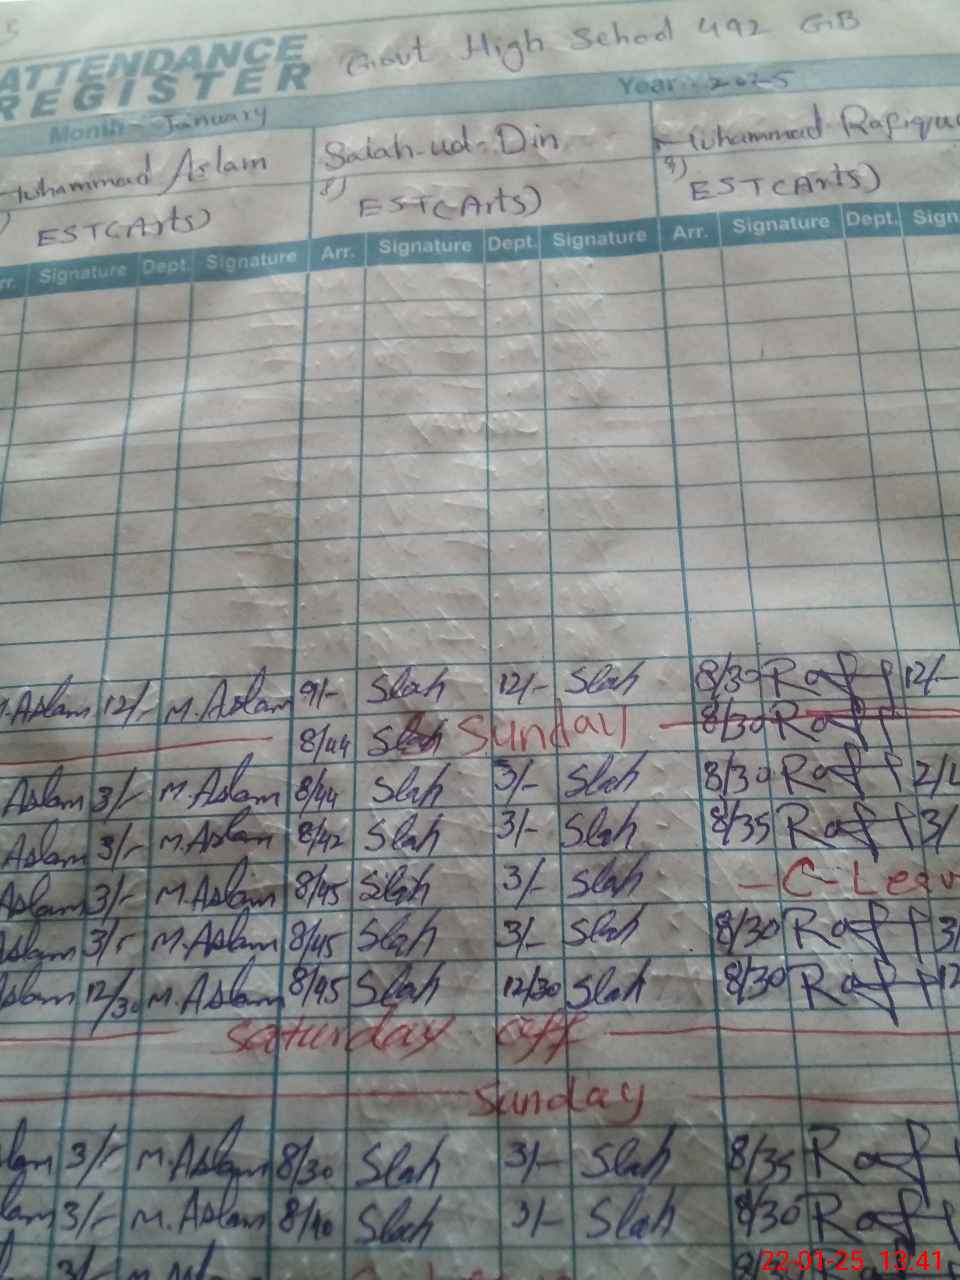 ATTENDANCE Govt High School 492 GB
REGISTER
Month - January Year 2025
Muhammad Aslam Salah-ud-Din Muhammad Rafique
8) 9)
EST(Arts) EST(Arts) EST(Arts)
Arr. Signature Dept. Signature Arr. Signature Dept. Signature Arr. Signature Dept. Sign
M.Aslam 12/- M.Aslam 9/- Slah 12/- Slah 8/30 Raff 12/-
8/44 Slah Sunday 8/30 Raff
Aslam 3/- M.Aslam 8/44 Slah 3/- Slah 8/30 Raff
Aslam 3/- M.Aslam 8/42 Slah 3/- Slah 8/35 Raff 3/
Aslam 3/- M.Aslam 8/45 Slah 3/- Slah - C-Leav
Aslam 3/- M.Aslam 8/45 Slah 3/- Slah 8/30 Raff 3/
Aslam 12/30 M.Aslam 8/45 Slah 12/30 Slah 8/30 Raff 12
Saturday off
Sunday
lam 3/- M.Aslam 8/30 Slah 3/- Slah 8/35 Raff
lam 3/- M.Aslam 8/40 Slah 3/- Slah 8/30 Raff
3/- M.Asl
22-01-25 13:41